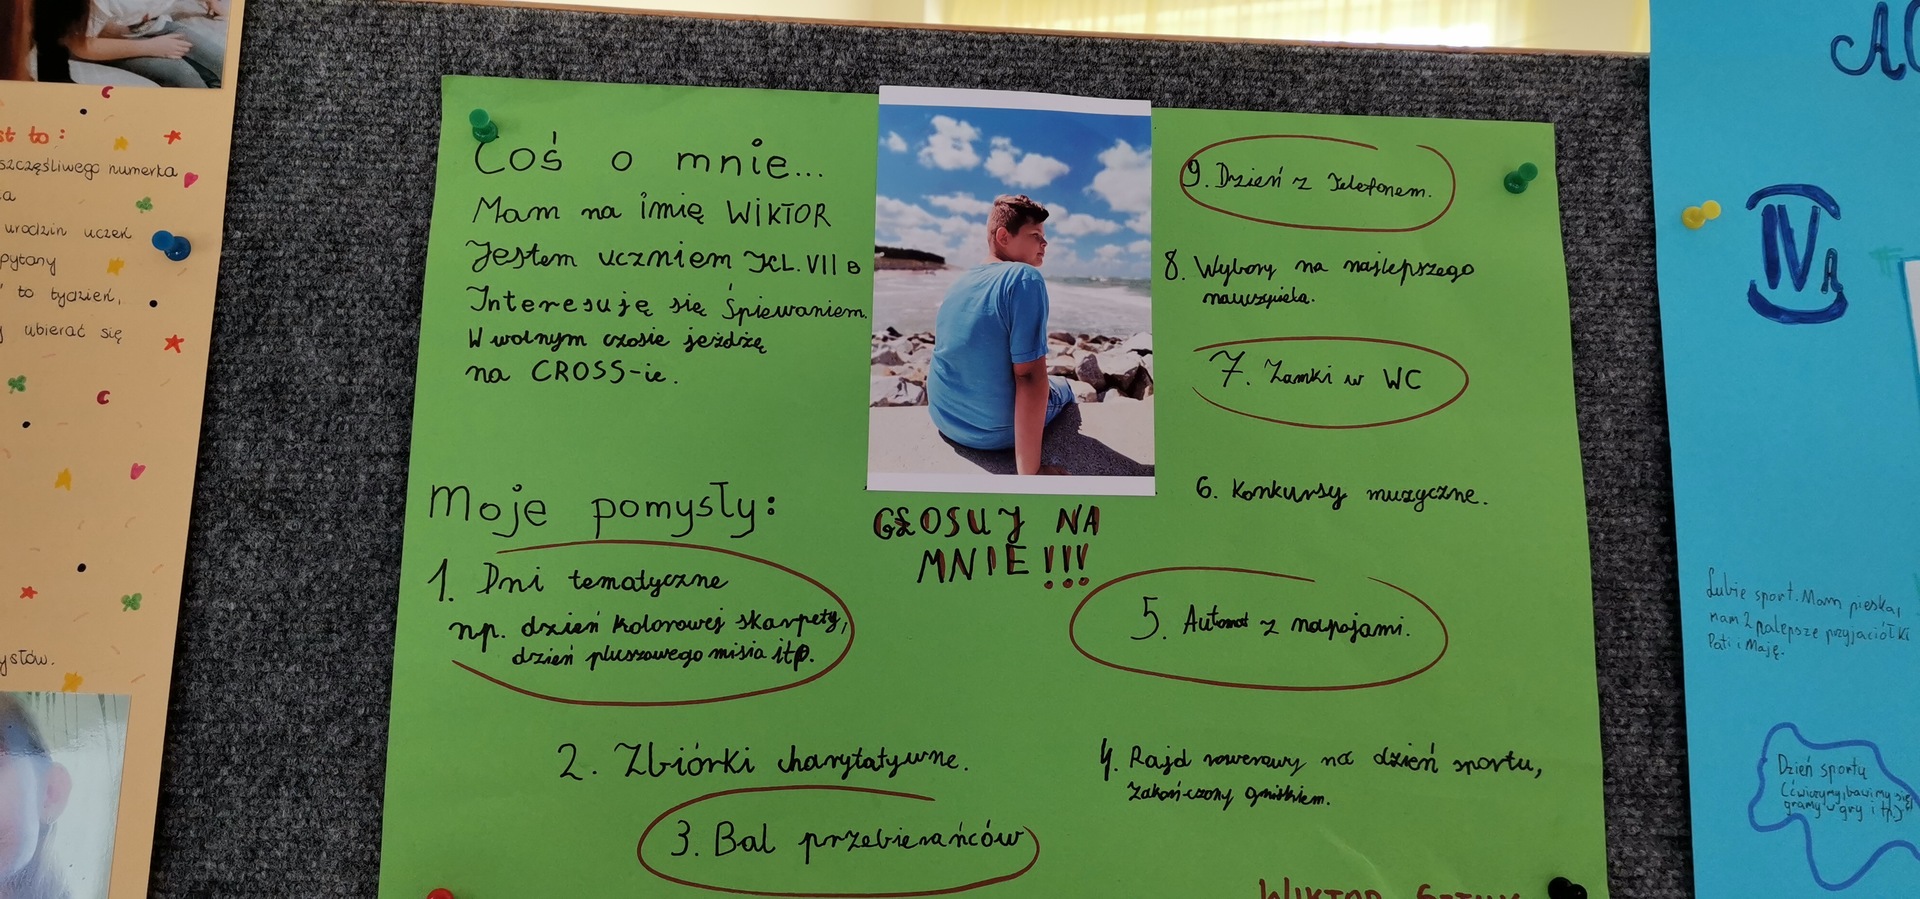 st to:
szczęśliwego numerka
a
urodzin uczeń
pytany
to tydzień,
ubierać się
ysłów.
Coś o mnie...
Mam na imię WIKTOR
Jestem uczniem KL. VII B
Interesuję się Śpiewaniem.
W wolnym czasie jeżdżę
na CROSS-ie.
Moje pomysły:
1. Dni tematyczne
np. dzień kolorowej skarpety,
dzień pluszowego misia itp.
2. Zbiórki charytatywne.
3. Bal przebierańców
GŁOSUJ NA
MNIE!!!
9. Dzień z Telefonem.
8. Wybory na najlepszego
nauczyciela.
7. Zamki w WC
6. Konkursy muzyczne.
5. Automat z napojami.
4. Rajd rowerowy na dzień sportu,
zakończony grillkiem.
WIKTOR
IV A
Lubię sport. Mam pieska,
mam 2 najlepsze przyjaciółki
Pati i Maję.
Dzień sportu
(ćwiczymy, bawimy się,
gramy w gry itp.)